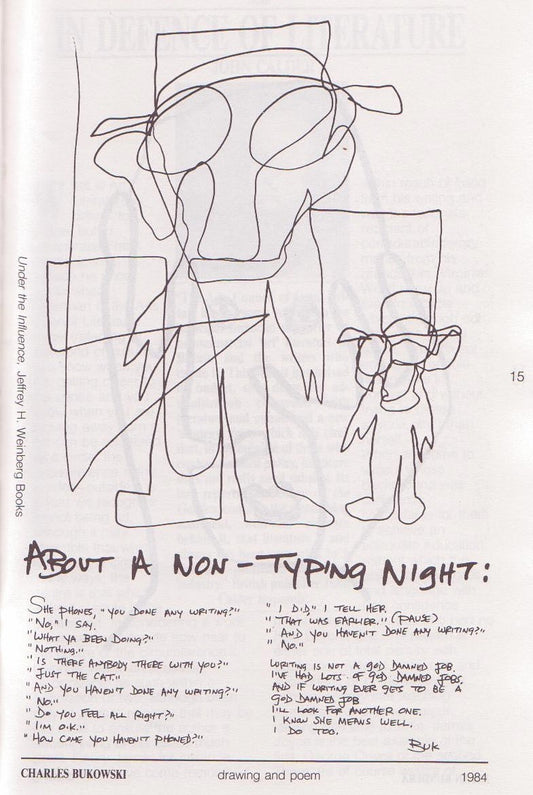 IN DEFENCE OF LITERATURE
Under the Influence, Jeffrey H. Weinberg Books
15
ABOUT A NON-TYPING NIGHT:
SHE PHONES, "YOU DONE ANY WRITING?"
"NO," I SAY.
"WHAT YA BEEN DOING?"
"NOTHING."
"IS THERE ANYBODY THERE WITH YOU?"
"JUST THE CAT."
"AND YOU HAVEN'T DONE ANY WRITING?"
"NO."
"DO YOU FEEL ALL RIGHT?"
"I'M O.K."
"HOW COME YOU HAVEN'T PHONED?"
"I DID," I TELL HER.
"THAT WAS EARLIER." (PAUSE)
"AND YOU HAVEN'T DONE ANY WRITING?"
"NO."
WRITING IS NOT A GOD DAMNED JOB.
I'VE HAD LOTS OF GOD DAMNED JOBS.
AND IF WRITING EVER GETS TO BE A
GOD DAMNED JOB
I'LL LOOK FOR ANOTHER ONE.
I KNOW SHE MEANS WELL.
I DO TOO.
BUK
CHARLES BUKOWSKI drawing and poem 1984